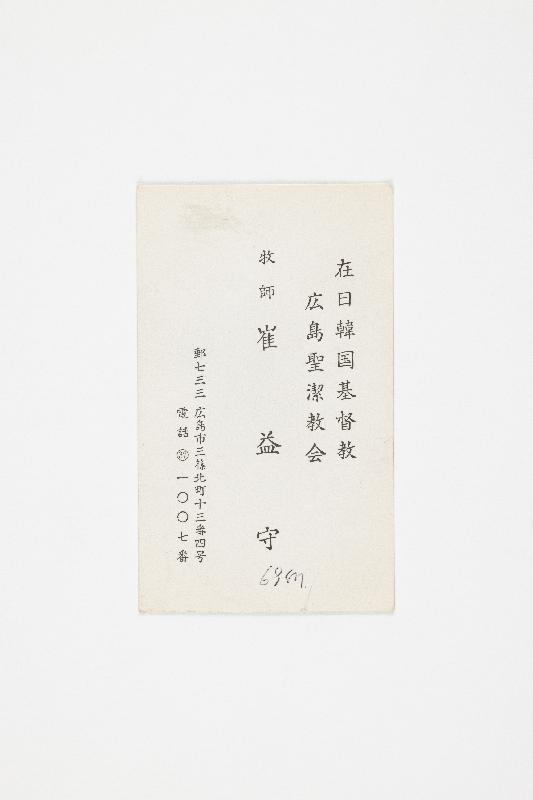 在日韓国基督教
広島聖潔教会
牧師 崔益守
郵七三三 広島市三篠北町十三番四号
電話 一〇〇七番